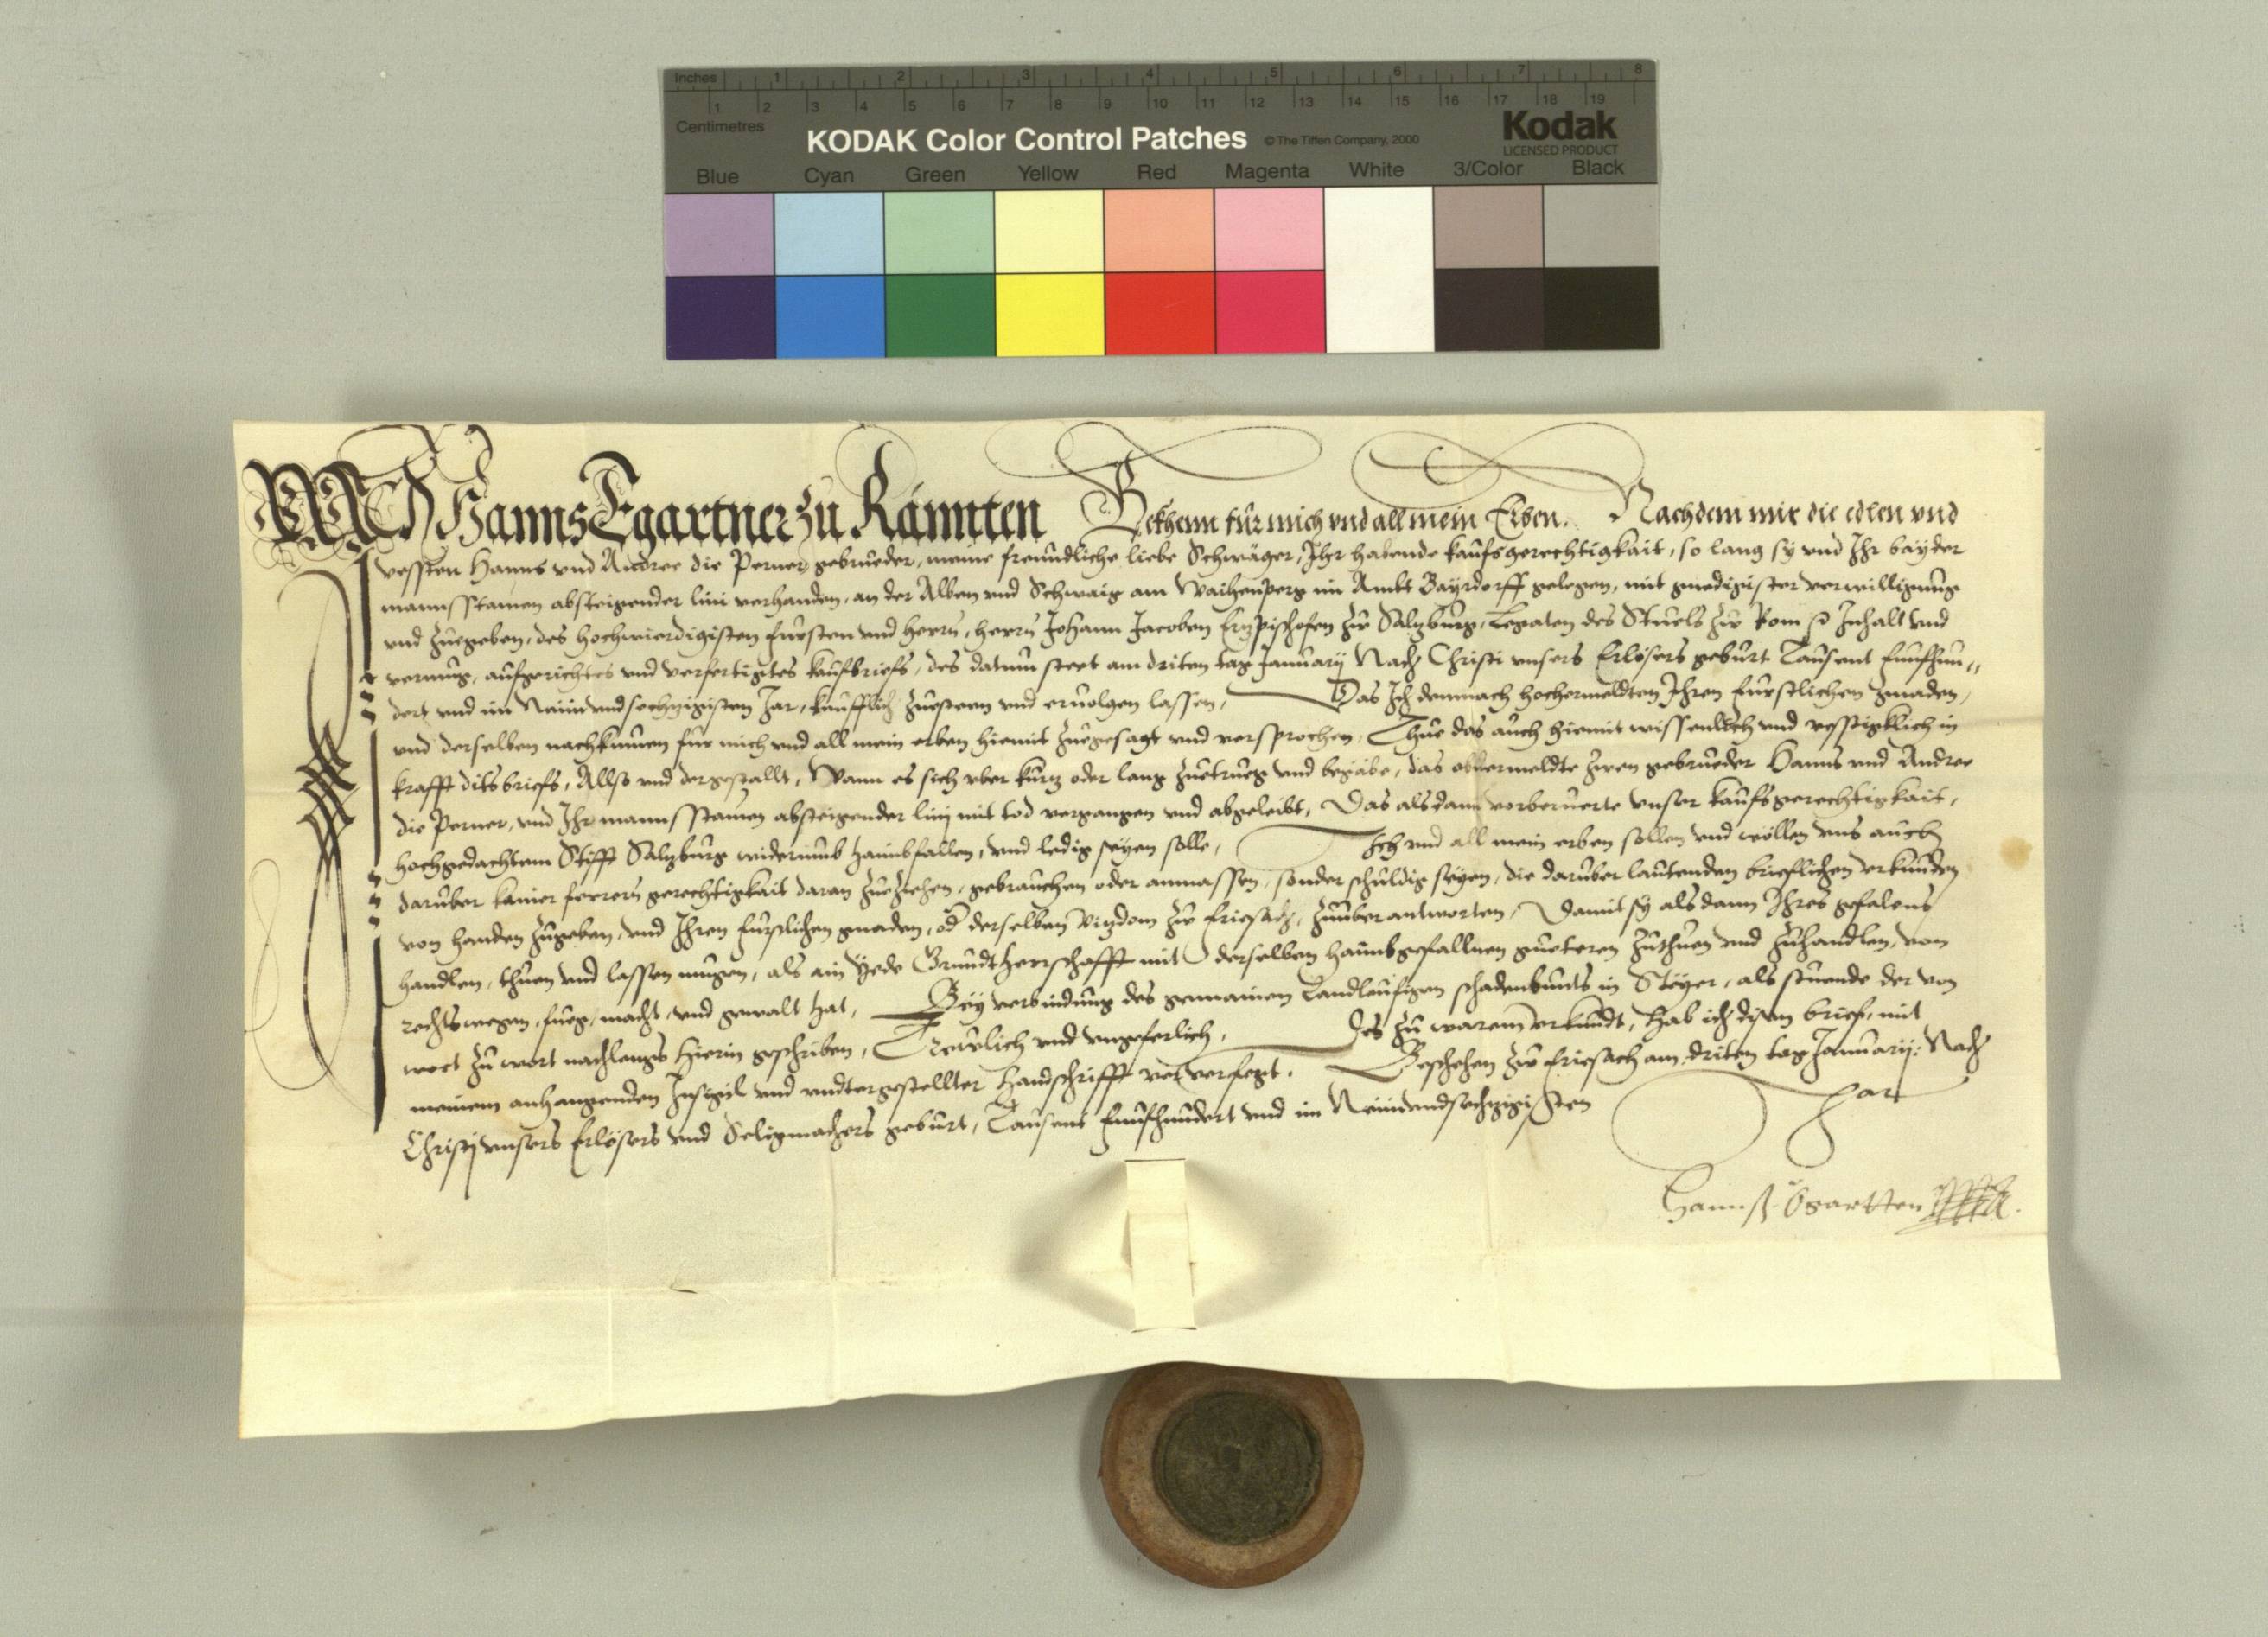 Inches 1 2 3 4 5 6 7 8
1 2 3 4 5 6 7 8 9 10 11 12 13 14 15 16 17 18 19
Centimetres
KODAK Color Control Patches © The Tiffen Company, 2000 Kodak
LICENSED PRODUCT
Blue Cyan Green Yellow Red Magenta White 3/Color Black
Ich Hanns Egartner zu Rännten Bekhenn für mich vnd all mein Erben. Nachdem mir die edlen vnd
vessten Hanns vnd Andree die Perner gebrüeder, meine freundliche liebe Schwäger, Ihr habende kaufsgerechtigkait, so lang sy vnd Ihr bayder
mannsstamen absteigender lini verhanden, an der Alben vnd Schwaig am Waihenperg im Ambt Bayrdorff gelegen, mit gnedigister verwilligung
vnd zuegeben, des hochwierdigisten fürsten vnd herrn, herrn Johann Jacoben Ertzpischofen zu Salzburg, Legaten des Stuels zu Rom Inhalt vnd
vermüg, aufgerichtes vnd verfertigtes kaufbriefs, des datum steet am driten tag January Nach Christi vnsers Erlösers geburt Tausent funfhun„
dert vnd im Neunundsechzigisten Jar, keufflich zuesteen vnd eruolgen lassen, Das Ich demnach hochermeldten Ihren fürstlichen gnaden,
vnd derselben nachkumen für mich vnd all mein erben hiemit zuegesagt vnd versprochen, Thue das auch hiemit wissentlich vnd vesstigklich in
krafft dits briefs, Allso vnd dergestallt, Wann es sich vber kurtz oder lang zuetrueg vnd begäbe, das obbermeldte zwen gebrüeder Hanns vnd Andree
die Perner, vnd Ihr mannsstamen absteigender linj mit tod vergangen vnd abgeleibt, Das alsdann vorberuerte vnser kaufsgerechtigkait,
hochgedachtem Stifft Salzburg widerumb haimbfallen, vnd ledig seyen solle, Ich vnd all mein erben sollen vnd wöllen vns auch
darüber kainer ferrern gerechtigkait daran zueziehen, gebrauchen oder anmassen, sonder schuldig seyen, die darüber lautenden brieflichen vrkunden
von handen zugeben, vnd Ihren fürstlichen gnaden, od derselben Vizdom zu friesach, zuüberantworten, Damit sy alsdann Ihres gefalens
handlen, thuen vnd lassen mügen, als ain yede Grundtherrschafft mit derselben haimbgefallnen güeteren zuthuen vnd zuhandlen, von
rechtswegen, fueg, macht, vnd gewalt hat, Bey verbindung des gemainen Landleufigen schadenbunts in Steyer, als stuende der von
wort zu wort nachlengs hierin geschriben, Treulich vnd vngeferlich, Des zu warem vrkundt, hab ich disen brief, mit
meinem anhangenden Insigil vnd vndtergestellter handschrifft verfertigt. Geschehen zu friesach am driten tag Januarij: Nach
Christj vnsers Erlösers vnd Seligmachers geburt, Tausent funfhundert vnd im Neunundsechzigisten Jar
Hannß Egartter